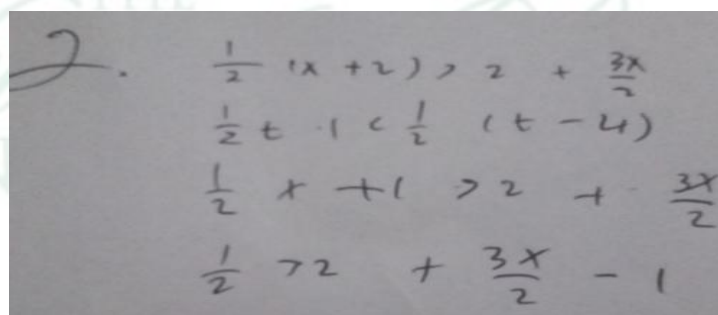 2. 1/2 (x + 2) > 2 + 3x/2
1/2 t · 1 < 1/2 (t - 4)
1/2 x + 1 > 2 + 3x/2
1/2 > 2 + 3x/2 - 1